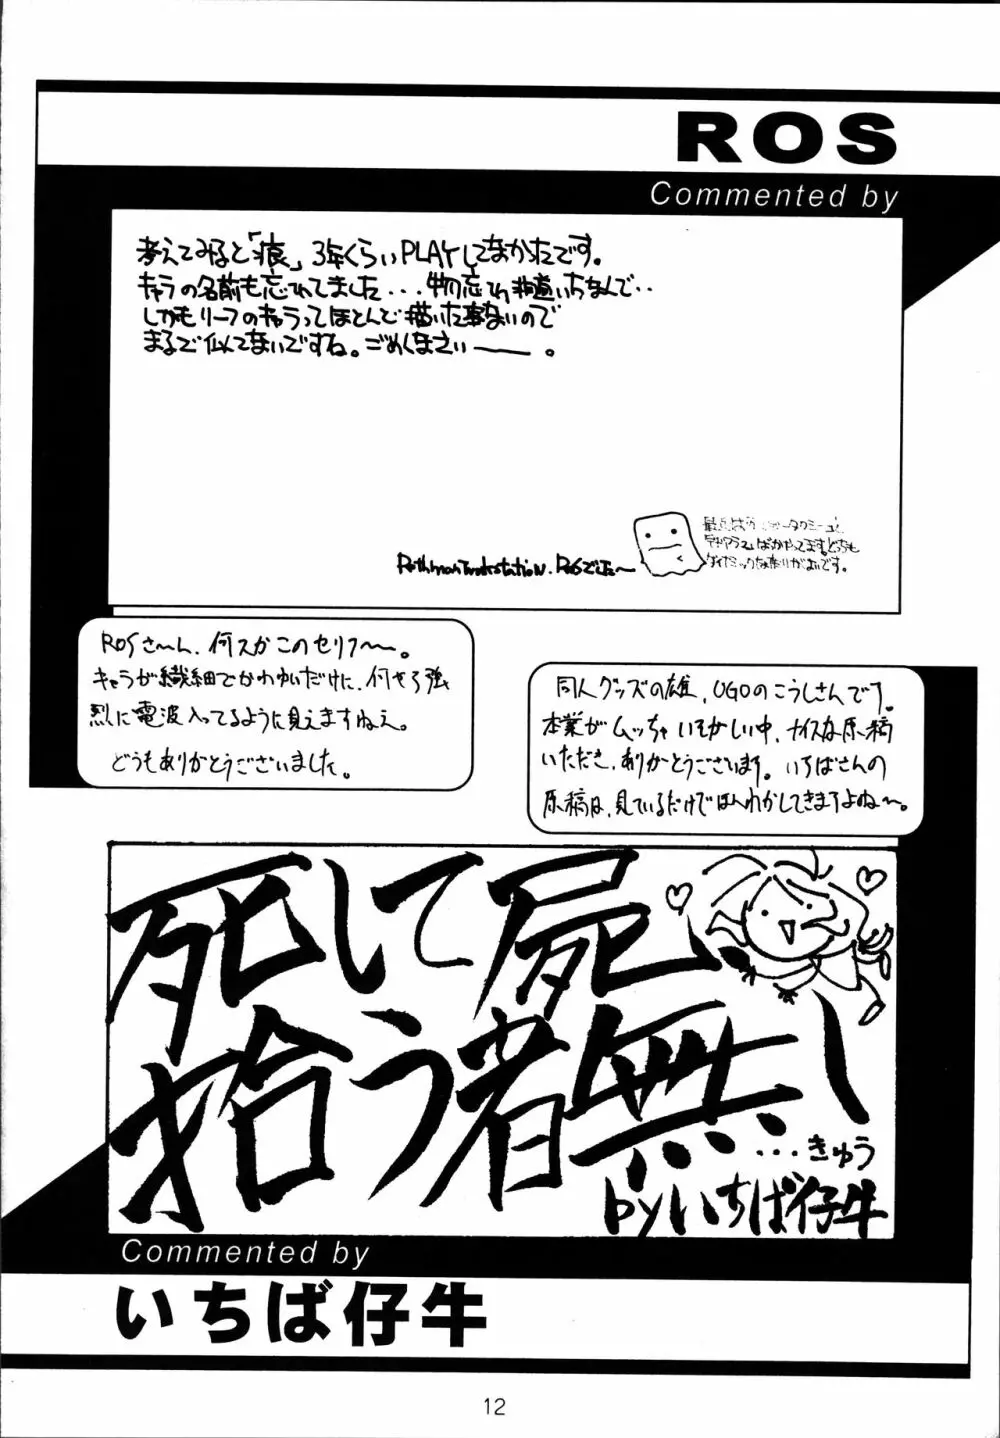 ROS
Commented by
考えてみると「痕」3年くらいPLAYしてなかったです。
キャラの名前も忘れてました...物忘れ非道いちなんで..
しかもリーフのキャラってほとんど描いた事ないので
まるで似てないですね。ごめんなさいーー。
ROSでした〜
ばかやってます。どちらも
ダイナミックな走りがよいです。
ROSさ〜ん、何スかこのセリフ〜。
キャラが繊細でかわゆいだけに、何やら強
烈に電波入ってるように見えますねえ。
どうもありがとうございました。
同人グッズの雄、UGOのこうしさんです。
本業がムッチャいそがしい中、ナイスな原稿
いただき、ありがとうございます。いちばさんの
原稿は、見ているだけでほんわかしてきますよね〜。
死して屍
拾う者無し
...きゅう
byいちば仔牛
Commented by
いちば仔牛
12